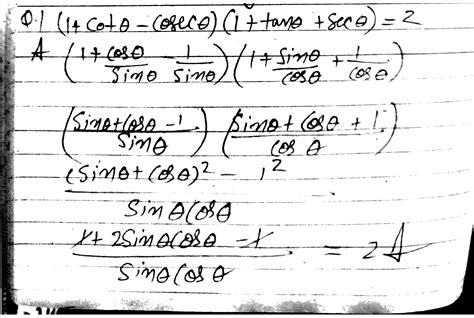 Q.1 (1+cotθ-cosecθ)(1+tanθ+secθ)=2
A (1+cosθ/sinθ - 1/sinθ)(1+sinθ/cosθ + 1/cosθ)
(sinθ+cosθ-1/sinθ)(sinθ+cosθ+1/cosθ)
(sinθ+cosθ)² - 1²
sinθcosθ
1+2sinθcosθ-1 = 2 A
sinθcosθ